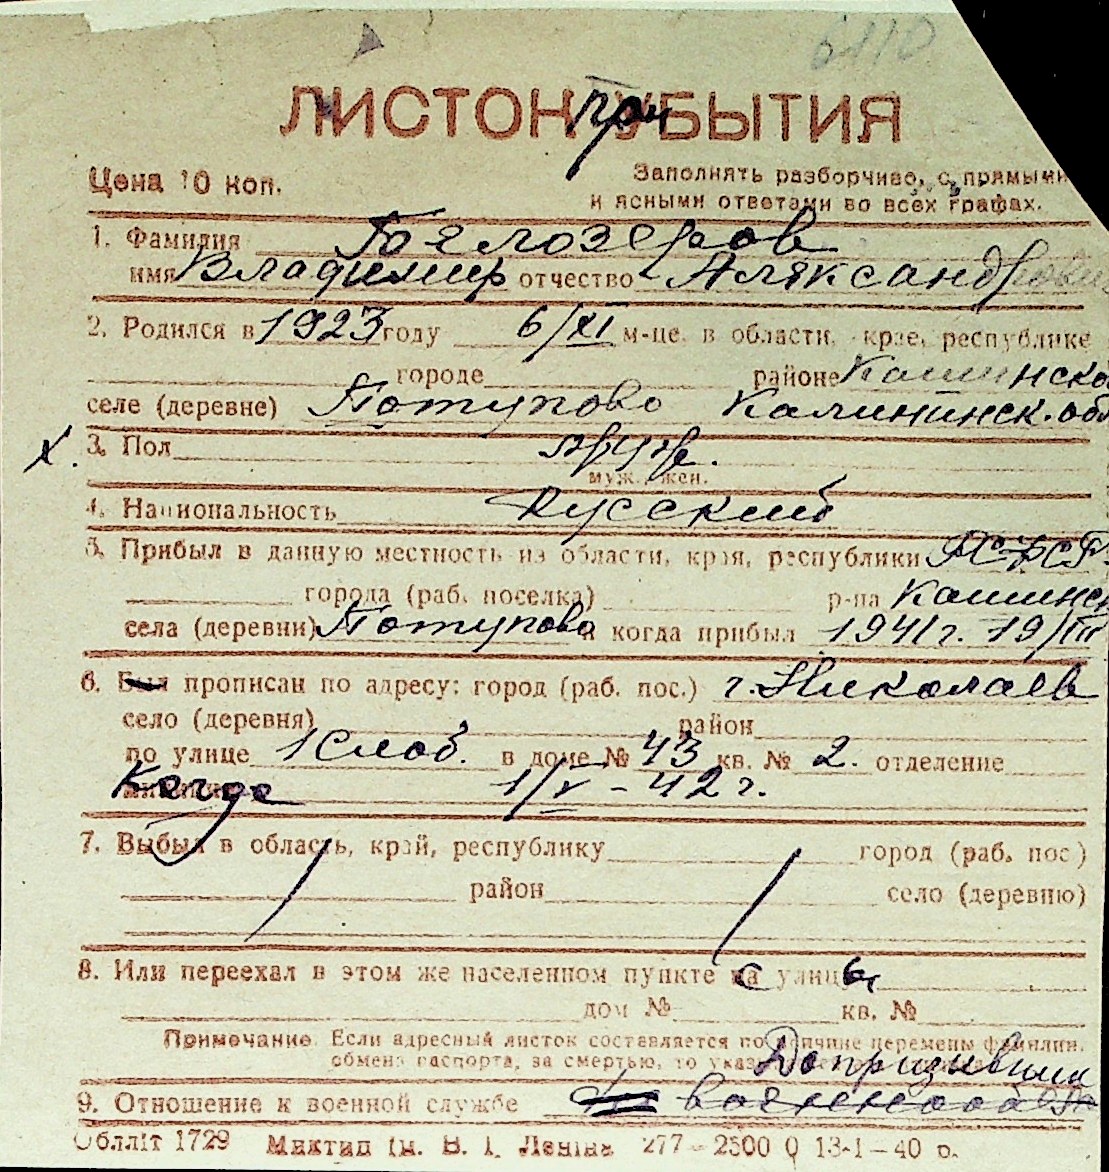 6110
ЛИСТОК при УБЫТИЯ
Цена 10 коп.
Заполнять разборчиво, с прямыми
и ясными ответами во всех графах.
1. Фамилия Бялозеров
имя Владимир отчество Аляксандрович
2. Родился в 1923 году 6/XI м-це, в области, крае, республике
городе районе Кашинско
селе (деревне) Потупово Калининск. обл
X. 3. Пол муж.
муж., жен.
4. Национальность Русский
5. Прибыл в данную местность из области, края, республики РСФСР
города (раб. поселка) р-на Кашинск
села (деревни) Потупово и когда прибыл 1941 г. 19/III
6. Был прописан по адресу: город (раб. пос.) г. Николаев
село (деревня) район
по улице 1 Слоб. в доме № 43 кв. № 2. отделение
Когда 1/V - 42 г.
7. Выбыл в область, край, республику город (раб. пос.)
район село (деревню)
8. Или переехал в этом же населенном пункте с улицы
дом № кв. №
Примечание. Если адресный листок составляется по причине перемены фамилии,
обмена паспорта, за смертью, то указ
Допризывник
9. Отношение к военной службе военнообяз
Облліт 1729 Миктип ім. В. І. Леніна 277—2500 0 13-I—40 р.